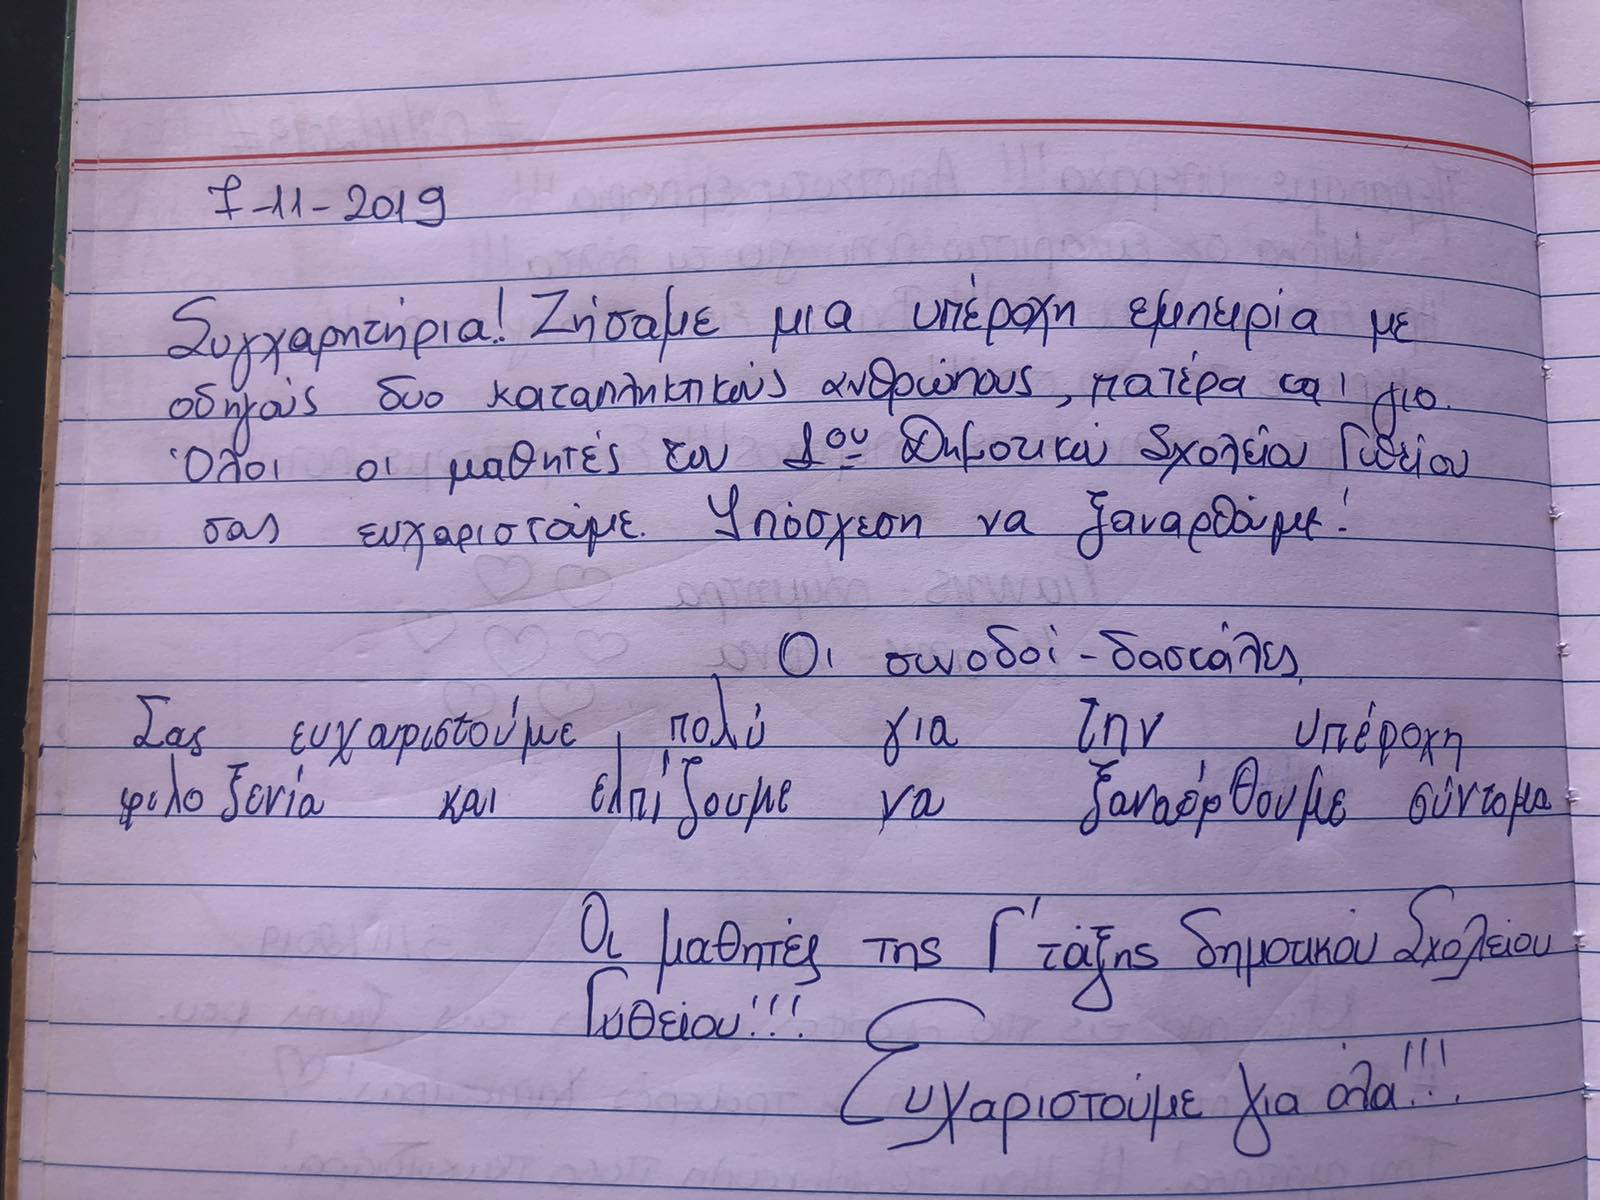 7-11-2019
Συγχαρητήρια! Ζήσαμε μια υπέροχη εμπειρία με
οδηγούς δυο καταπληκτικούς ανθρώπους, πατέρα και γιο.
Όλοι οι μαθητές του 1ου Δημοτικού Σχολείου Γυθείου
σας ευχαριστούμε. Υπόσχεση να ξαναρθούμε!
Οι συνοδοί - δασκάλες
Σας ευχαριστούμε πολύ για την υπέροχη
φιλοξενία και ελπίζουμε να ξαναέρθουμε σύντομα
Οι μαθητές της Γ' τάξης δημοτικού Σχολείου
Γυθείου!!!
Ευχαριστούμε για όλα!!!